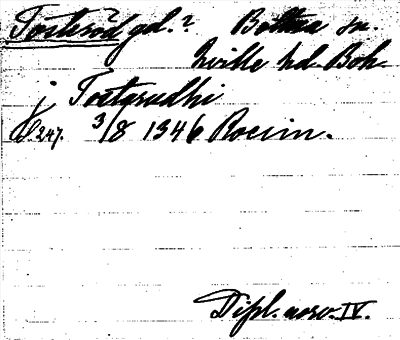 Tosteröd gd.? Bottna sn.
Kville hd. Boh.
j Tostarudhi
S. 247. 3/8 1346 Rocim.
Dipl. norv. IV.